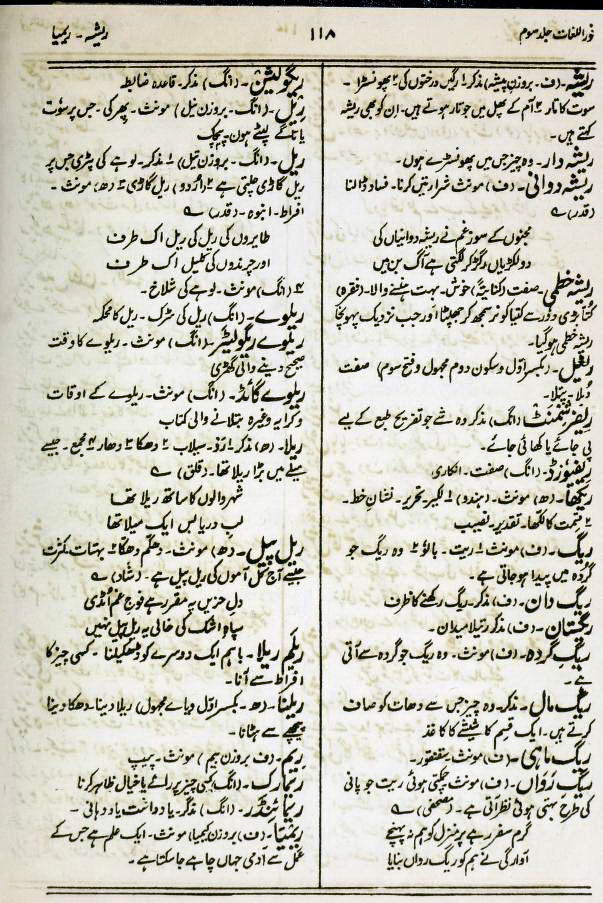 نور اللغات جلد سوم
۱۱۸
ریشہ - ریمیا
ریشہ۔ (ف۔ بروزن بیشہ) مذکر۔ ۱ رگیں درختوں کی ۲ پھونسڑا۔
سوت کا تار ۳ آم کے پھل میں جو تار ہوتے ہیں۔ ان کو بھی ریشہ
کہتے ہیں۔
ریشہ دار۔ وہ چیز جس میں پھونسڑے ہوں۔
ریشہ دوانی۔ (ف) مونث۔ شرارتیں کرنا۔ فساد ڈالنا
(قدر) ؎
مجنوں کے سوزِ غم نے ریشہ دوانیاں کی
دو لکڑیاں رگڑ کر لگتی ہے آگ بن میں
ریشہ خطمی۔ صفت (کنایۃً) خوش۔ بہت ہنسنے والا۔ (فقرہ)
کتا بڑی دور سے کتیا کو نر سمجھ کر جھپٹا اور جب نزدیک پہونچا
ریشہ خطمی ہو گیا۔
ریغیل۔ (بکسر اول و سکون دوم مجہول و فتح سوم) صفت
دُبلا۔ پتلا۔
ریفرشمنٹ (انگ) مذکر وہ شے جو تفریح طبع کے لیے
پی جائے یا کھائی جائے۔
ریفیوزڈ۔ (انگ) صفت۔ انکاری
ریکھا۔ (ھ) مونث۔ (ہندو) ۱ لکیر۔ تحریر۔ نشان خط۔
۲ قسمت کا لکھا۔ تقدیر۔ نصیب
ریگ۔ (ف) مونث ۱ ریت۔ بالو ۲ وہ ریگ جو
گردہ میں پیدا ہو جاتی ہے۔
ریگ دان۔ (ف) مذکر۔ ریگ رکھنے کا ظرف
ریگستان۔ (ف) مذکر۔ ریتلا میدان۔
ریگ گردہ۔ (ف) مونث۔ وہ ریگ جو گردہ سے آتی
ہے۔
ریگ مال۔ مذکر۔ وہ چیز جس سے دھات کو صاف
کرتے ہیں۔ ایک قسم کا شیشے کا کاغذ
ریگ ماہی۔ (ف) مونث۔ سقنقور۔
ریگ رَواں۔ (ف) مونث۔ چمکتی ہوئی ریت جو پانی
کی طرح بہتی ہوئی نظر آتی ہے۔ (مصحفی) ؎
گرم سفر رہے پر منزل کو ہم نہ پہنچے
آوارگی نے ہم کو ریگ رواں بنایا
ریگولیشن۔ (انگ) مذکر۔ قاعدہ ضابطہ
ریل۔ (انگ۔ بروزن نیل) مونث۔ پھرکی۔ جس پر سوت
یا تاگے لپٹے ہوں۔ پیچک
ریل۔ (انگ۔ بروزن تیل) ۱ مذکر۔ لوہے کی پٹری جس پر
ریل گاڑی چلتی ہے ۲ (اردو) ریل گاڑی ۳ (ھ) مونث۔
افراط۔ انبوہ۔ (قدر) ؎
طائروں کی ریل کی ریل اک طرف
اور چرندوں کی کلیل اک طرف
۴ (انگ) مونث۔ لوہے کی سلاخ۔
ریلوے۔ (انگ) ریل کی سڑک۔ ریل کا محکمہ
ریلوے ریگولیٹر۔ (انگ) مونث۔ ریلوے کا وقت
صحیح دینے والی گھڑی
ریلوے گائڈ۔ (انگ) مونث۔ ریلوے کے اوقات
و کرایہ وغیرہ بتلانے والی کتاب
ریلا۔ (ھ) مذکر ۱ رَو۔ سیلاب ۲ دھکا ۳ دھار ۴ مجمع۔ جیسے
میلے میں بڑا ریلا تھا۔ (قلق) ؎
شہر والوں کا ساتھ ریلا تھا
لبِ دریا بس ایک میلا تھا
ریل پیل۔ (ھ) مونث۔ دھکم دھکا ۲ بہتات۔ کثرت
جیسے آج کل آموں کی ریل پیل ہے۔ (شاد) ؎
دلِ حزیں پہ مقرر ہے فوج غم اُمڈی
سپاہِ اشک کی خالی یہ ریل پیل نہیں
ریلم ریلا۔ باہم ایک دوسرے کو ڈھکیلنا۔ کسی چیز کا
افراط سے آنا۔
ریلنا۔ (ھ۔ بکسر اول و یائے مجہول) ریلا دینا۔ دھکا دینا
پیچھے سے ہٹانا۔
ریم۔ (ف بروزن بیم) مونث۔ پیپ
ریمارک۔ (انگ) کسی چیز پر رائے یا خیال ظاہر کرنا
ریمائنڈر۔ (انگ) مذکر۔ یادداشت یاد دہانی۔
ریمیا۔ (ف) بروزن کیمیا) مونث۔ ایک علم ہے جس کے
عمل سے آدمی جہاں چاہے جا سکتا ہے۔